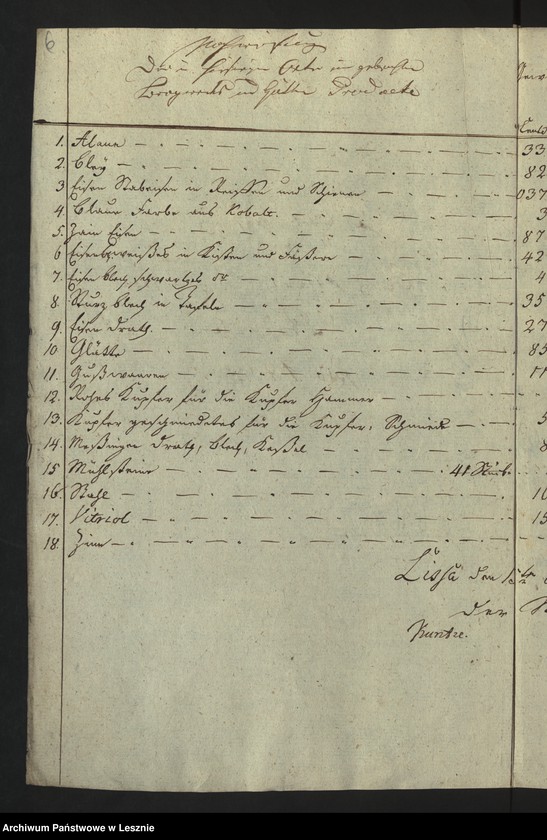 6
Nachweisung
Der in hiesigen Orte ein gebrachten
Bergwercks und Hütten Producte
Cent
1. Alaun 33
2. Bley 82
3 Eisen Stabeisen in Reissen und Schienen 037
4. Blaue Farbe aus Kobalt. 3
5. Zain Eisen 87
6 in Kisten und Fässern 42
7. Eisen blech schwartzes 4
8. Sturz blech in Tafeln 35
9. Eisen drath 27
10 Glätte 85
11. Gußwaaren 11
12. Rohes Kupfer für die Kupfer Hammer
13. Kupfer geschmiedetes für die Kupfer, Schmiede 5
14. Messingen drath, blech, Kessel 8
15 Mühlsteine 41 Stück.
16. Stahl 10
17. Vitriol 15
18. Zinn
Lissa den
Der
Kuntze.
Archiwum Państwowe w Lesznie